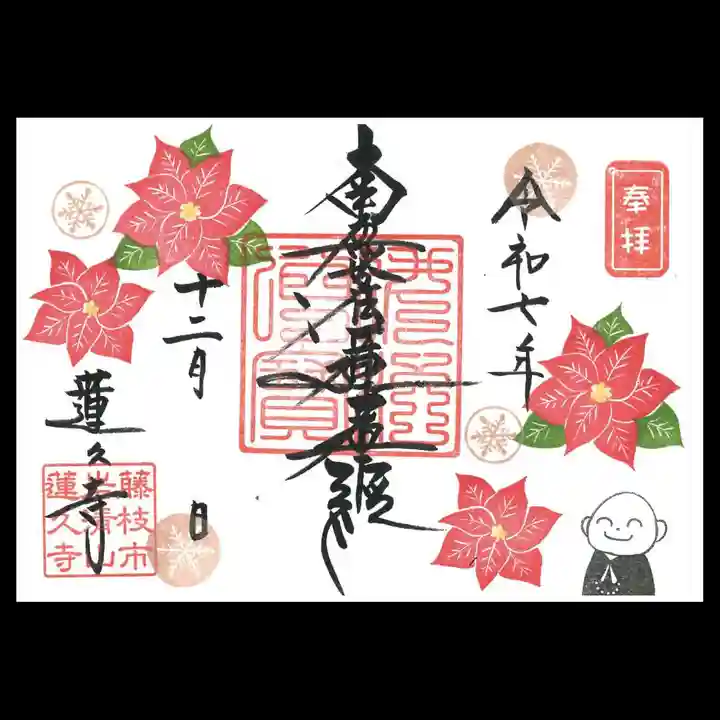 奉拝
令和七年
南無妙法蓮華経
十二月
日
蓮久寺
藤枝市
岩清山
蓮久寺